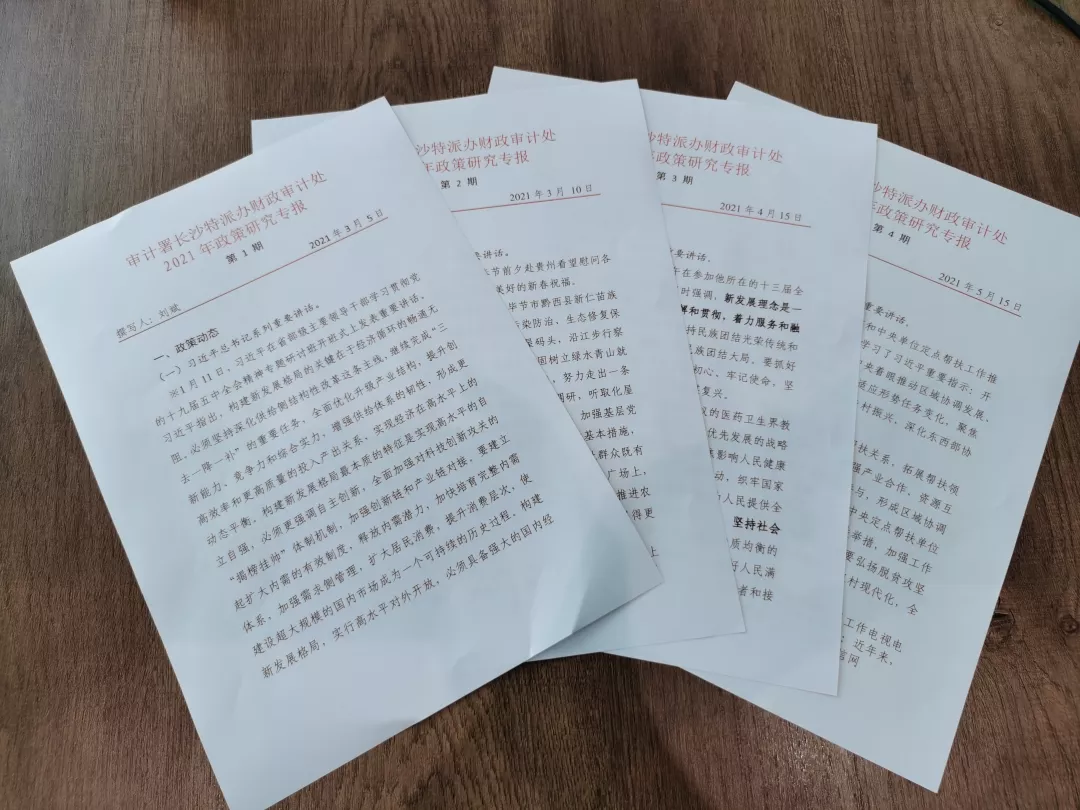 审计署长沙特派办财政审计处
2021 年政策研究专报
第 1 期
2021 年 3 月 5 日
撰写人：刘斌
一、政策动态
（一）习近平总书记系列重要讲话。
※1 月 11 日，习近平在省部级主要领导干部学习贯彻党
的十九届五中全会精神专题研讨班开班式上发表重要讲话。
习近平指出，构建新发展格局的关键在于经济循环的畅通无
阻，必须坚持深化供给侧结构性改革这条主线，继续完成“三
去一降一补”的重要任务，全面优化升级产业结构，提升创
新能力、竞争力和综合实力，增强供给体系的韧性，形成更
高效率和更高质量的投入产出关系，实现经济在高水平上的
动态平衡。构建新发展格局最本质的特征是实现高水平的自
立自强，必须更强调自主创新，全面加强对科技创新攻关的
“揭榜挂帅”体制机制，加强创新链和产业链对接。要建立
起扩大内需的有效制度，释放内需潜力，加快培育完整内需
体系，加强需求侧管理，扩大居民消费，提升消费层次，使
建设超大规模的国内市场成为一个可持续的历史过程。构建
新发展格局，实行高水平对外开放，必须具备强大的国内经
沙特派办财政审计处
年政策研究专报
第 2 期
2021 年 3 月 10 日
要讲话。
节前夕赴贵州看望慰问各
美好的新春祝福。
毕节市黔西县新仁苗族
染防治、生态修复保
码头，沿江步行察
固树立绿水青山就
，努力走出一条
调研，听取化屋
加强基层党
基本措施，
群众既有
广场上，
推进农
得更
让
沙特派办财政审计处
年政策研究专报
第 3 期
2021 年 4 月 15 日
重要讲话。
在参加他所在的十三届全
时强调，新发展理念是一
解和贯彻，着力服务和融
持民族团结光荣传统和
民族团结大局。要抓好
初心、牢记使命，坚
复兴。
议的医药卫生界教
优先发展的战略
影响人民健康
动，织牢国家
人民提供全
坚持社会
质均衡的
好人民满
者和接
沙特派办财政审计处
年政策研究专报
第 4 期
2021 年 5 月 15 日
重要讲话。
和中央单位定点帮扶工作推
学习了习近平重要指示：开
央着眼推动区域协调发展、
适应形势任务变化，聚焦
村振兴，深化东西部协
帮扶关系，拓展帮扶领
强产业合作、资源互
与，形成区域协调
中央定点帮扶单位
举措，加强工作
要弘扬脱贫攻坚
村现代化，全
工作电视电
；近年来，
官网